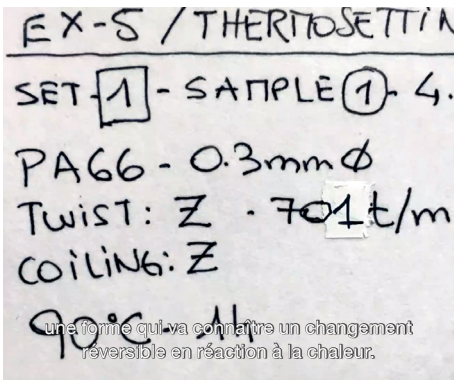 EX-5 / THERMOSETTIN
SET-1 - SAMPLE 1 - 4.
PA66 - 0.3mm Ø
TWIST: Z - 701 t/m
COILING: Z
90°C - 1H
une forme qui va connaître un changement
réversible en réaction à la chaleur.